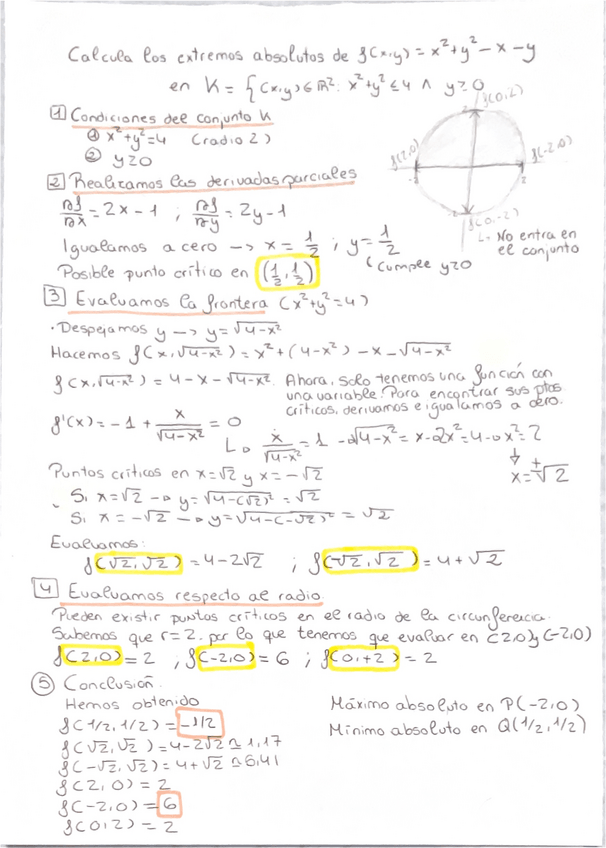 Calcula los extremos absolutos de f(x,y) = x²+y²-x-y
en K = {(x,y)∈ℝ²: x²+y²≤4 ∧ y≥0
1 Condiciones del conjunto K
① x²+y²=4 (radio 2)
② y≥0
f(0,2)
f(2,0)
f(-2,0)
2
-2
2
-2
f(0,-2)
↳ No entra en
el conjunto
2 Realizamos las derivadas parciales
∂f/∂x = 2x-1 ; ∂f/∂y = 2y-1
Igualamos a cero → x = 1/2 ; y = 1/2
Posible punto crítico en (1/2, 1/2)
↳ Cumple y≥0
3 Evaluamos la frontera (x²+y²=4)
· Despejamos y → y = √4-x²
Hacemos f(x,√4-x²) = x²+(4-x²) -x-√4-x²
f(x,√4-x²) = 4-x-√4-x². Ahora, solo tenemos una función con
una variable. Para encontrar sus ptos.
críticos, derivamos e igualamos a cero.
f'(x) = -1 + x/√4-x² = 0
↳ x/√4-x² = 1 → √4-x² = x → 2x² = 4 → x² = 2
↓
x = ±√2
Puntos críticos en x=√2 y x=-√2
· Si x=√2 → y=√4-(√2)² = √2
Si x = -√2 → y=√4-(-√2)² = √2
Evaluamos:
f(√2,√2) = 4-2√2 ; f(-√2,√2) = 4+√2
4 Evaluamos respecto al radio
Pueden existir puntos críticos en el radio de la circunferencia.
Sabemos que r=2. por lo que tenemos que evaluar en (2,0)y(-2,0)
f(2,0) = 2 ; f(-2,0) = 6 ; f(0,+2) = 2
⑤ Conclusión.
Hemos obtenido
f(1/2,1/2) = -1/2
f(√2,√2) = 4-2√2 ≃ 1,17
f(-√2,√2) = 4+√2 ≃ 5,41
f(2,0) = 2
f(-2,0) = 6
f(0,2) = 2
Máximo absoluto en P(-2,0)
Mínimo absoluto en Q(1/2,1/2)